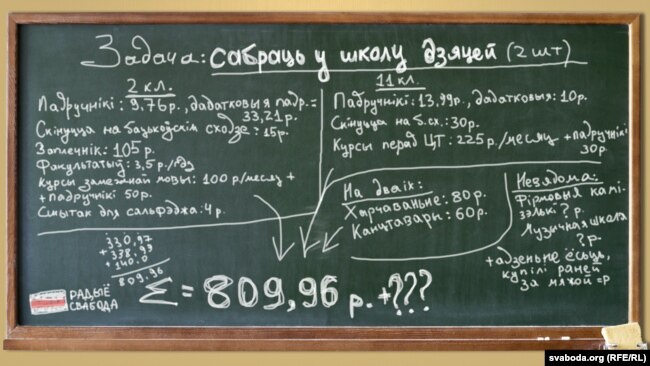 Задача: сабраць у школу дзяцей (2 шт)
2 кл.
Падручнікі: 9,76 р., дадатковыя падр. =
33,21 р.
Скінуцца на бацькоўскім сходзе: 15р.
Заплечнік: 105 р.
Факультатыў: 3,5 р./
Курсы замежнай мовы: 100 р/месяц +
+ падручнікі 50р.
Сшытак для сальфэджа: 4 р.
11 кл.
Падручнікі: 13,99р., дадатковыя: 10р.
Скінуцца на б.сх.: 30р.
Курсы перад ЦТ: 225 р./месяц + падручнікі
30р.
На дваіх:
Харчаваньне: 80 р.
Канцтавары: 60р.
Невядома:
Фірмовыя камі-
зэлькі ? р.
Музычная школа
? р.
+ адзеньне ёсьць,
купілі раней
за мяжой =р
330,97
+ 338,99
+ 140.0
809,96
Σ = 809,96 р. +???
РАДЫЁ
СВАБОДА
svaboda.org (RFE/RL)